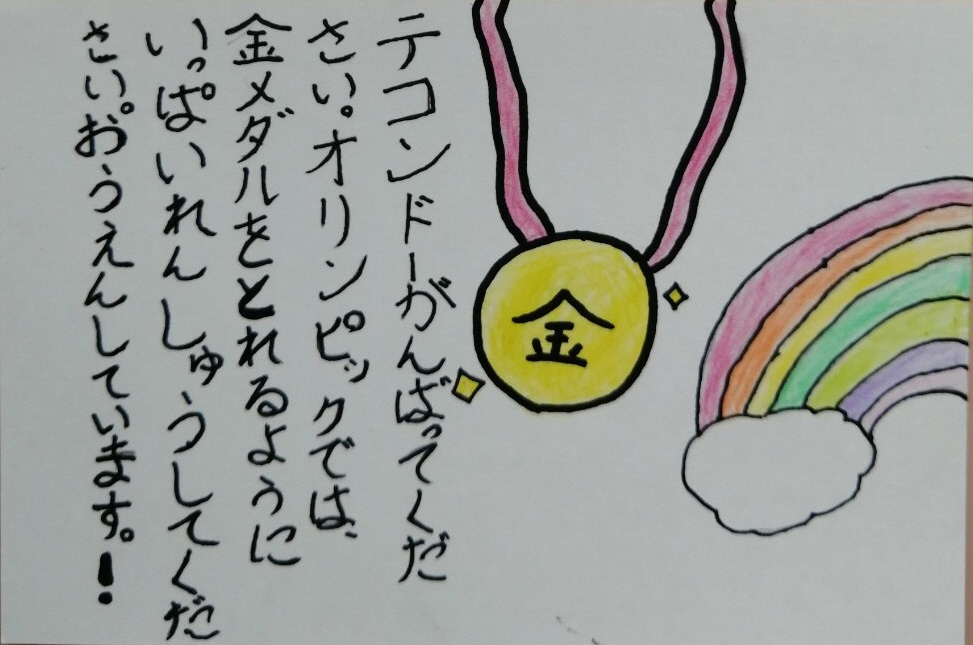 テコンドーがんばってくだ
さい。オリンピックでは、
金メダルをとれるように
いっぱいれんしゅうしてくだ
さい。おうえんしています。!
金